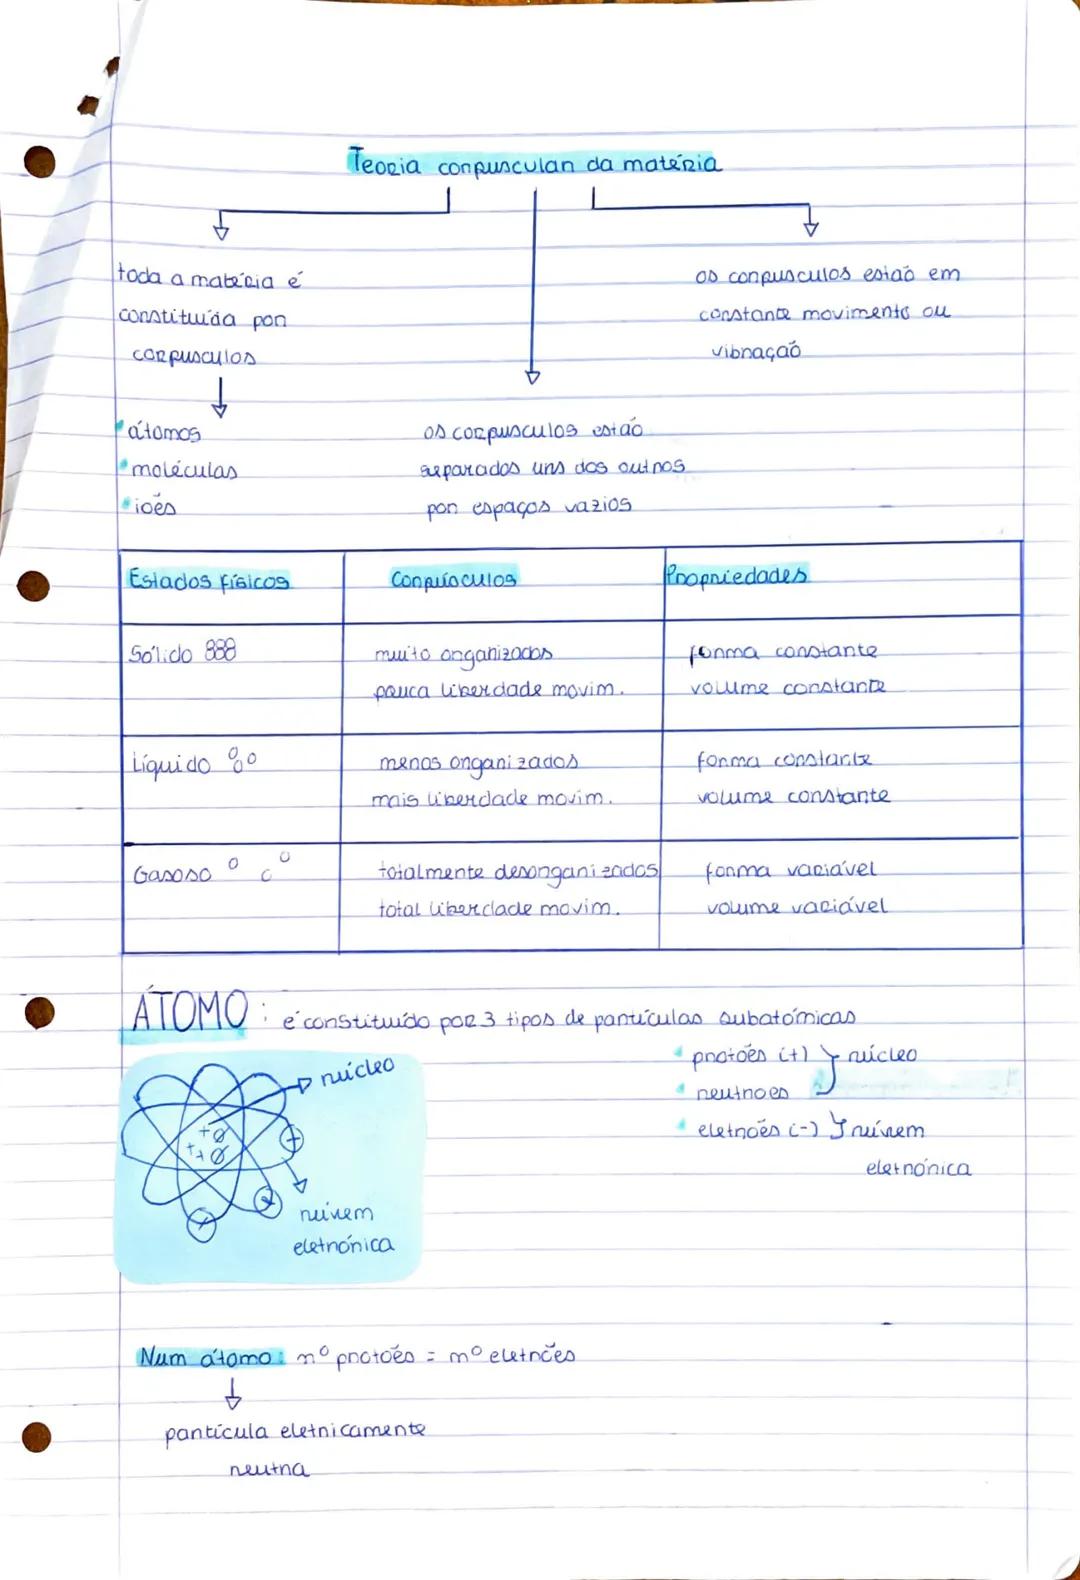 Teoria corpuscular da matéria
toda a matéria é
constituída por
corpusculos
átomos
moléculas
iões
os corpusculos estão
separados uns dos outros
por espaços vazios
os corpusculos estão em
constante movimento ou
vibração
Estados físicos
Corpúsculos
Propriedades
Sólido
muito organizados
pouca liberdade movim.
forma constante
volume constante
Líquido
menos organizados
mais liberdade movim.
forma constante
volume constante
Gasoso
totalmente desorganizados
total liberdade movim.
forma variável
volume variável
ÁTOMO: é constituído por 3 tipos de partículas subatómicas
protões (+) } núcleo
neutroes
eletrões (-) } núvem
eletrónica
núcleo
núvem
eletrónica
Num átomo: nº protões = nº eletrões
partícula eletricamente
neutra